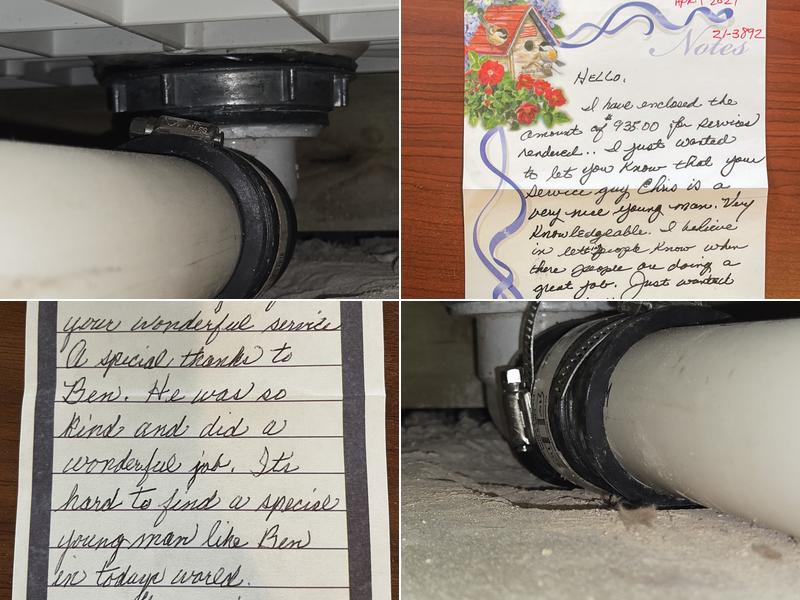 APRIL 2021
21-3892
Notes
HELLO,
I have enclosed the
amount of $935.00 for services
rendered.. I just wanted
to let you know that your
service guy Chris is a
very nice young man. Very
Knowledgeable. I believe
in letting people know when
there people are doing a
great job. Just wanted
your wonderful service
A special thanks to
Ben. He was so
kind and did a
wonderful job. It's
hard to find a special
young man like Ben
in todays world.